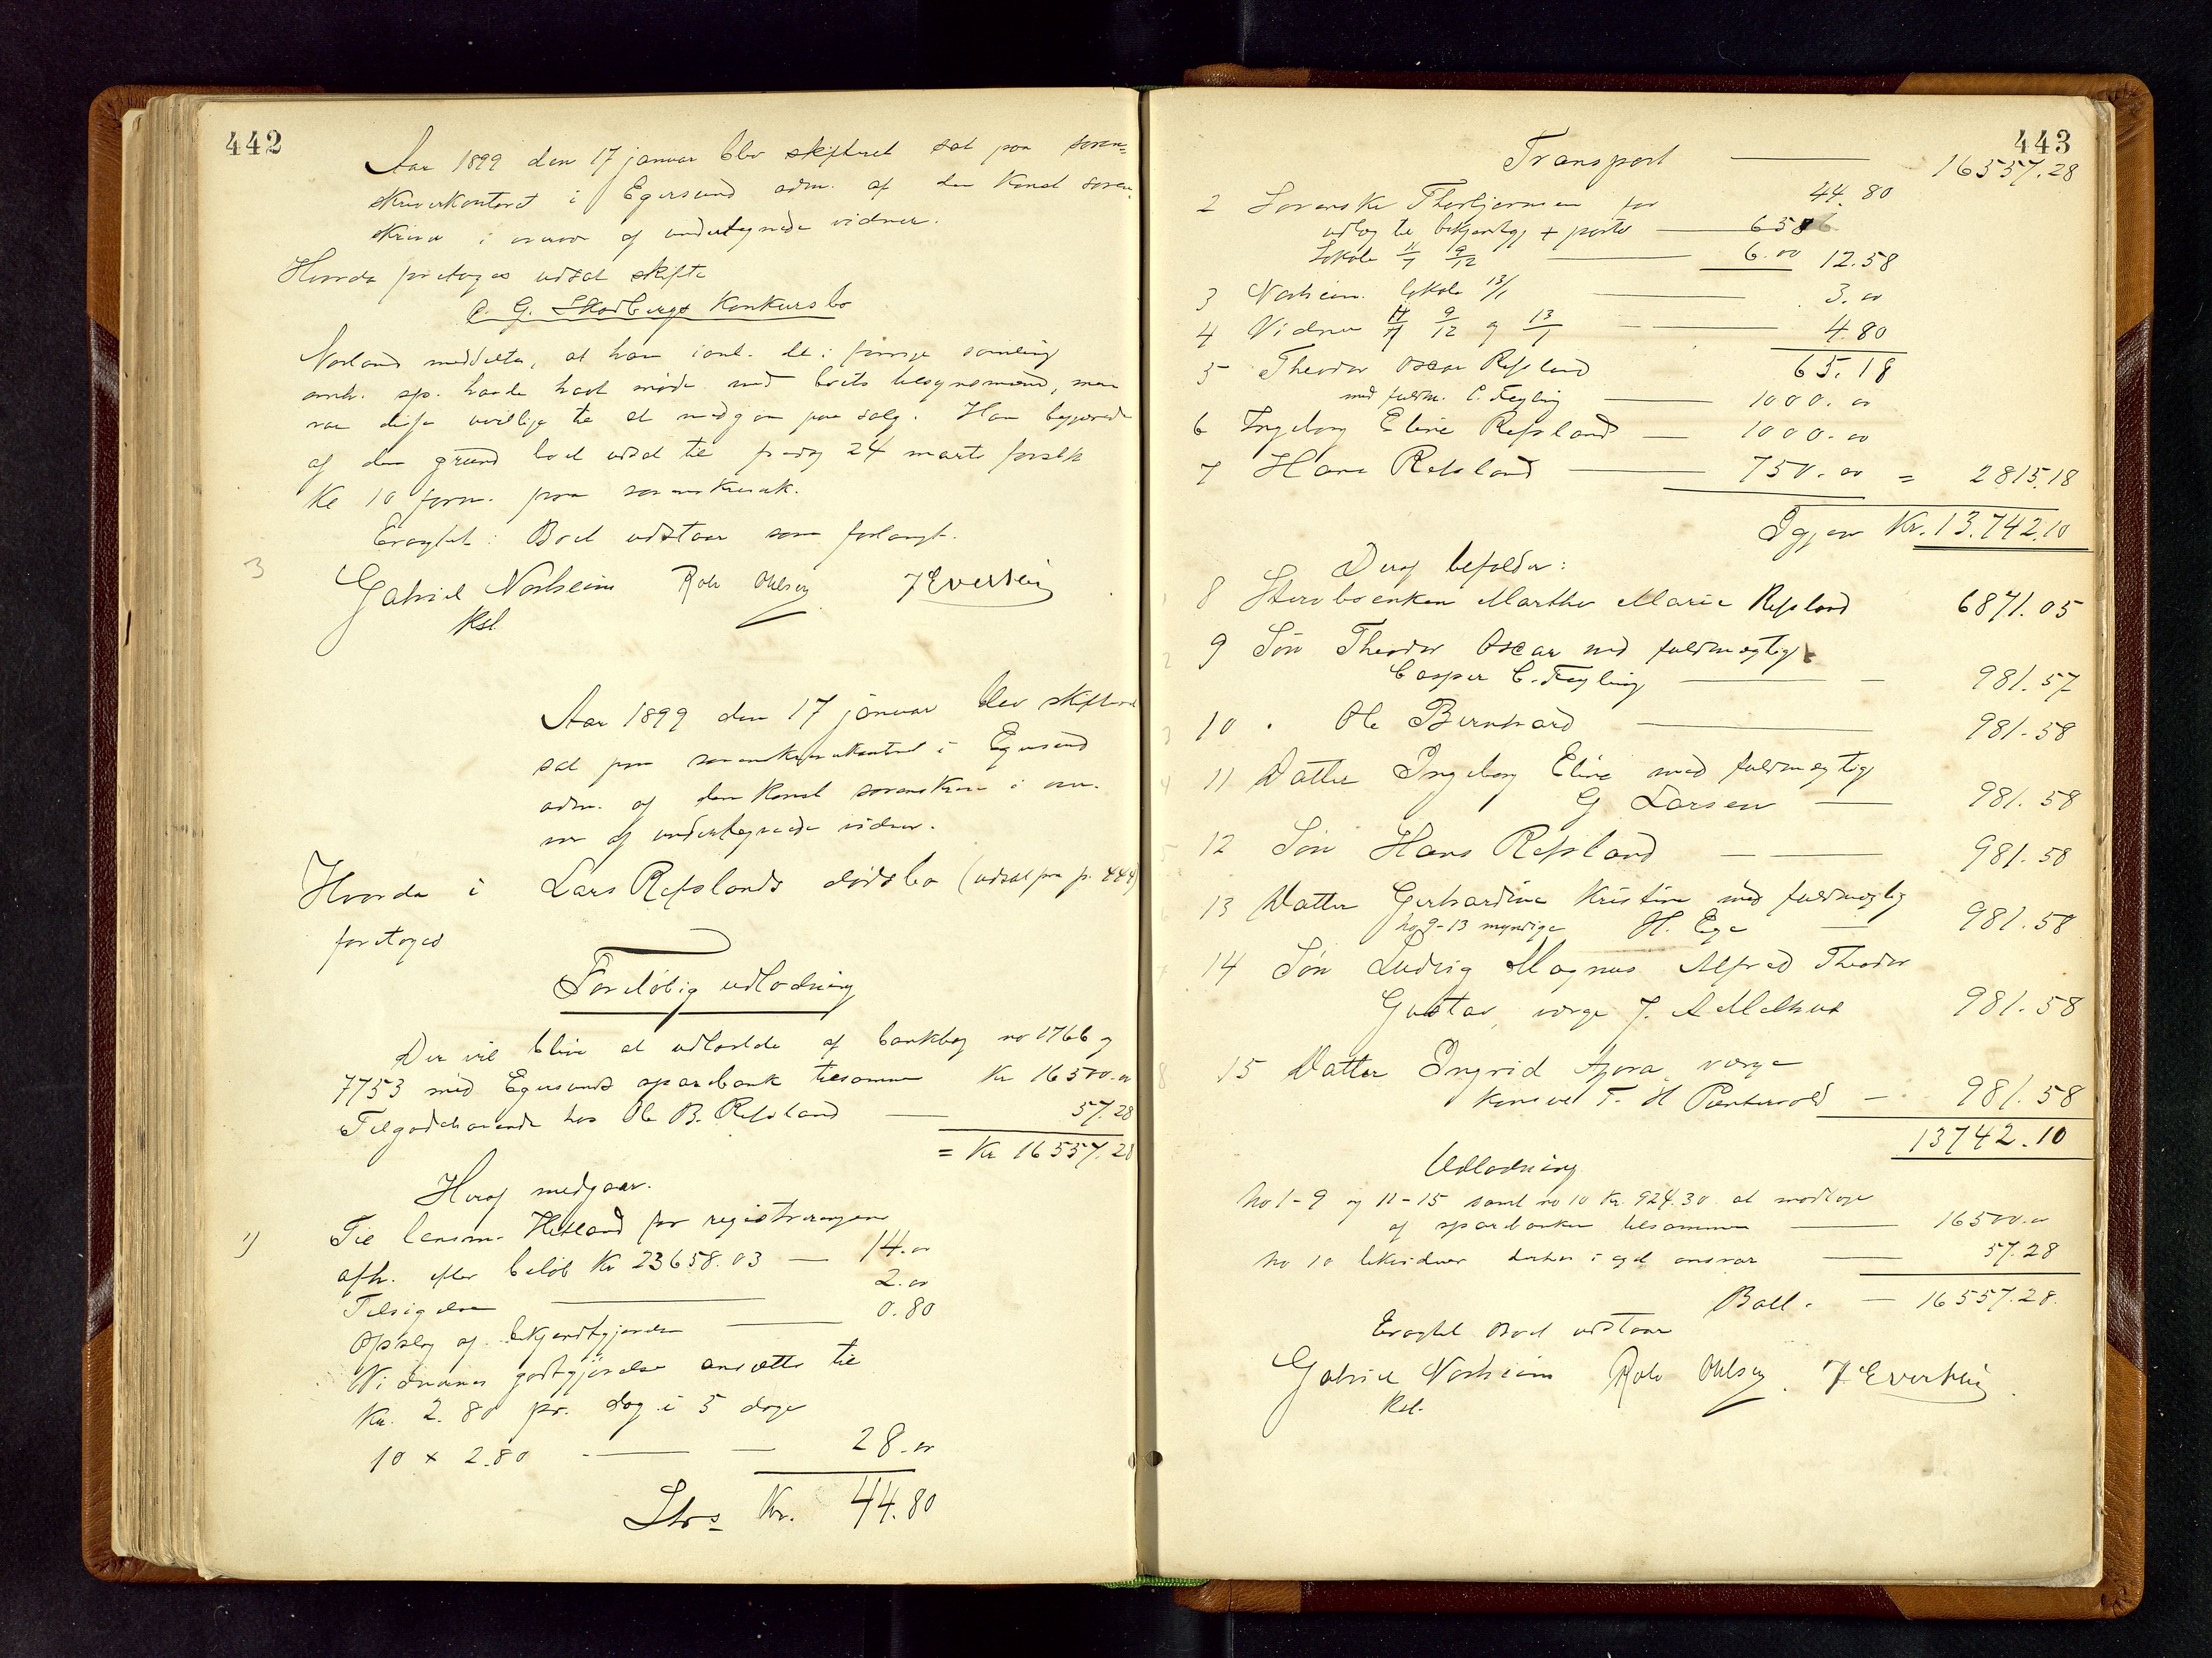 442
Aar 1899 den 17 januar blev skifteret sat paa soren=
skriverkontoret i Egersund adm. af den konst soren
skriver i overvær af undertegnede vidner.
Hvorda foretoges udsat skifte
O. G. Skadbergs Konkursbo
Norland meddelte, at han i forrige samling
havde havt møde med boets tilsynsmænd, men
var disse uvillige til at medgaa paa salg. Han begjærede
af den grund boet udsat til fredag 24 marts førstk
kl 10 form. paa
Eragtet: Boet udstaar som forlangt.
3
Gabriel Norheim Rolv Ohlsen J Evertsen
Kst
Aar 1899 den 17 januar blev skifteret
sat paa sorenskriverkontoret i Egersund
adm. af den konst sorenskriver i over.
vær af undertegnede vidner.
Hvorda i Lars Refslands dødsbo (udsat fra p. 444)
foretoges
Foreløbig udlodning
Der vil blive at udlodde af bankbog no 1766 og
7753 med Egersunds sparebank tilsammen Kr 16500.00
Tilgodehavende hos Ole B. Refsland 57.28
= Kr 16557.28
Heraf medgaar.
1) Til lensm. Hetland for registreringen
afh. efter beløb Kr 23658.03 — 14.00
Tilsigelse 2.00
Opslag af bekjendtgjørelse 0.80
Vidnernes godtgjørelse ansættes til
Kr. 2.80 pr. dag i 5 dage
10 x 2.80 — 28.00
Ltrs Kr. 44.80
443
Transport — 16557.28
44.80
2 Sorenskr Thorbjørnsen for
udlæg til bekjendtgj + porto — 6.58
Lokale 11/7 9/12 — 6.00 12.58
3 Norheim. lokale 13/1 — 3.00
4 Vidner 11/7 9/12 og 13/1 — 4.80
65.18
5 Theodor Oscar Refsland
med fuldm. C. Feyling — 1000.00
6 Ingeborg Eline Refsland — 1000.00
7 Hans Refsland — 750.00 = 2815.18
Igjen Kr. 13.742.10
Deraf befalder:
1 8 Stervboenken Marthe Marie Refsland 6871.05
2 9 Søn Theodor Oscar med fuldmægtig
Casper C. Feyling — 981.57
3 10 . Ole Bernhard — 981.58
4 11 Datter Ingeborg Eline med fuldmægtig
G Larsen — 981.58
5 12 Søn Hans Refsland — 981.58
6 13 Datter Gerhardine Kristine med fuldmægtig
No 9-13 myndige H. Ege — 981.58
7 14 Søn Ludvig Magnus Alfred Theodor
Gustav, verge J. A Melhus 981.58
8 15 Datter Ingrid Agora, verge
konsul T. H Puntervold — 981.58
13742.10
Udlodning
No 1-9 og 11-15 samt no 10 Kr. 924.30 at modtage
af sparebanken tilsammen — 16500.00
No 10 likviderer derhos i eget ansvar — 57.28
Ball. — 16557.28.
Eragtet Boet udstaar
Gabriel Norheim Rolv Ohlsen. J Evertsen.
Kst.